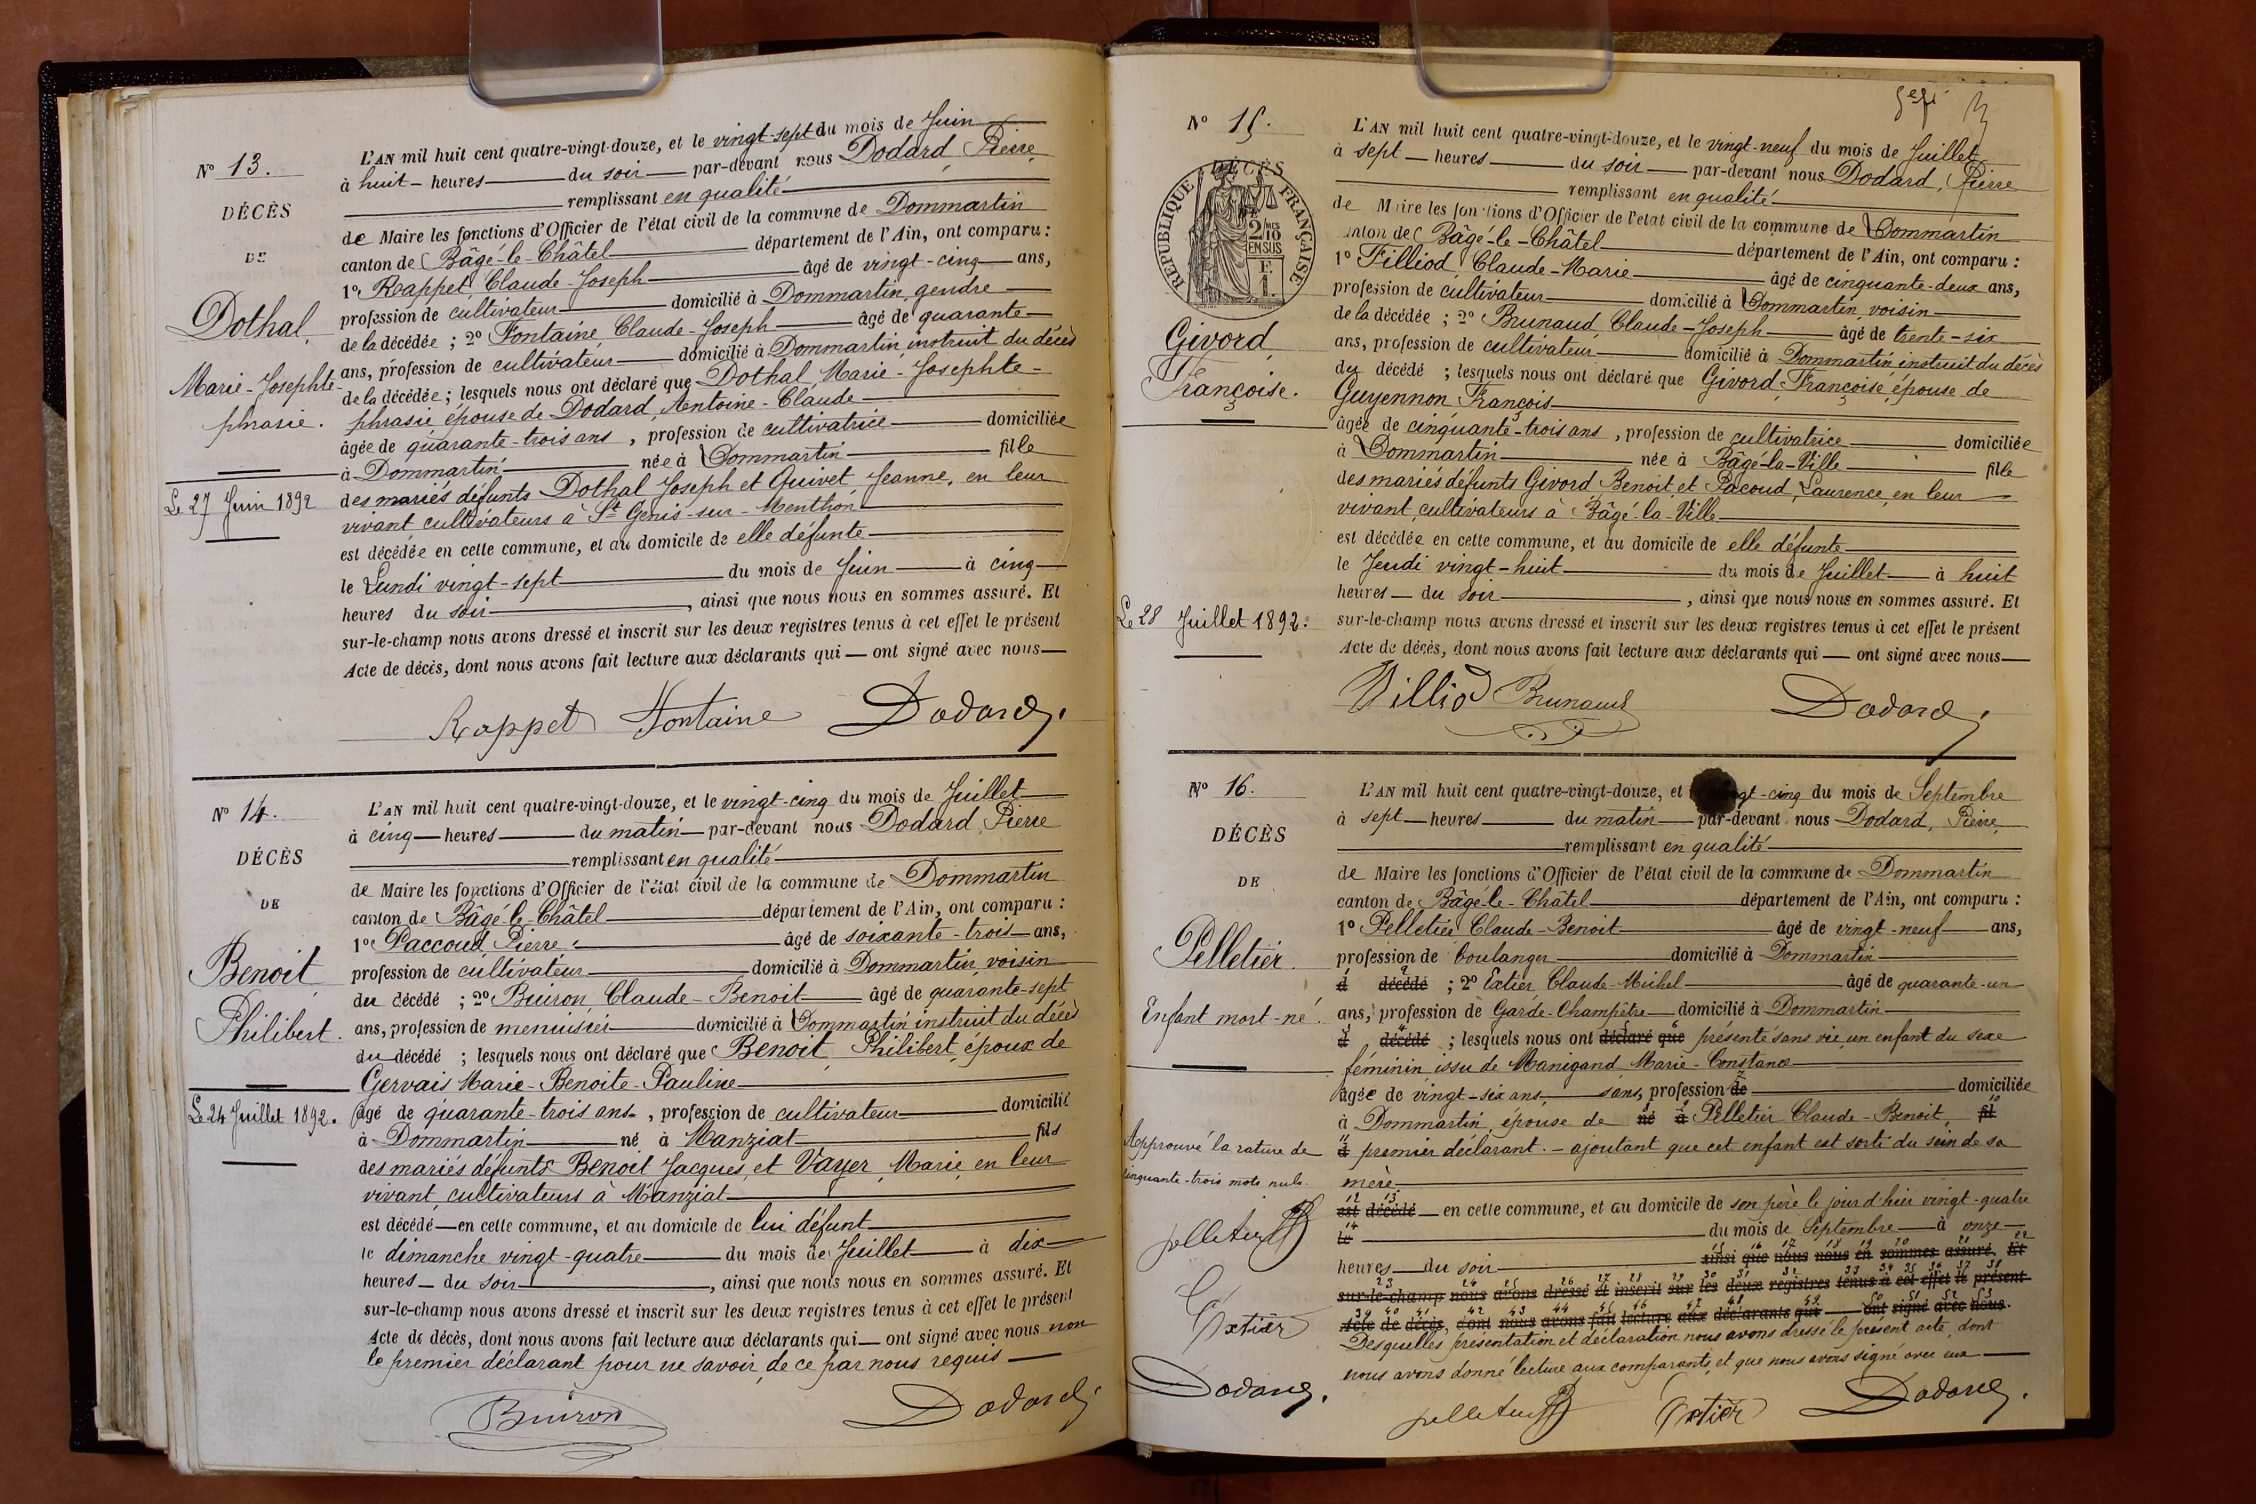 N° 13.
DÉCÈS
DE
Dothal,
Marie-Josephte-
phrasie.
Le 27 Juin 1892
L'AN mil huit cent quatre-vingt-douze, et le vingt-sept du mois de Juin
à huit heures du soir par-devant nous Dodard, Pierre,
remplissant en qualité
de Maire les fonctions d'Officier de l'état civil de la commune de Dommartin
canton de Bâgé-le-Châtel département de l'Ain, ont comparu :
1° Rappet, Claude-Joseph âgé de vingt-cinq ans,
profession de cultivateur domicilié à Dommartin, gendre
de la décédée ; 2° Fontaine, Claude-Joseph âgé de quarante
ans, profession de cultivateur domicilié à Dommartin, instruit du décès
de la décédée ; lesquels nous ont déclaré que Dothal, Marie-Josephte-
phrasie, épouse de Dodard, Antoine-Claude
âgée de quarante-trois ans, profession de cultivatrice domiciliée
à Dommartin née à Dommartin fille
des mariés défunts Dothal Joseph et Quivet Jeanne, en leur
vivant cultivateurs à St Genis-sur-Menthon
est décédée en cette commune, et au domicile de elle défunte
le Lundi vingt-sept du mois de Juin à cinq
heures du soir, ainsi que nous nous en sommes assuré. Et
sur-le-champ nous avons dressé et inscrit sur les deux registres tenus à cet effet le présent
Acte de décès, dont nous avons fait lecture aux déclarants qui ont signé avec nous
Rappet Fontaine Dodard
N° 14.
DÉCÈS
DE
Benoit
Philibert.
Le 24 Juillet 1892.
L'AN mil huit cent quatre-vingt-douze, et le vingt-cinq du mois de Juillet
à cinq heures du matin par-devant nous Dodard, Pierre
remplissant en qualité
de Maire les fonctions d'Officier de l'état civil de la commune de Dommartin
canton de Bâgé-le-Châtel département de l'Ain, ont comparu :
1° Paccoud, Pierre, âgé de soixante-trois ans,
profession de cultivateur domicilié à Dommartin, voisin
du décédé ; 2° Buiron, Claude-Benoit âgé de quarante-sept
ans, profession de menuisier domicilié à Dommartin, instruit du décès
du décédé ; lesquels nous ont déclaré que Benoit, Philibert, époux de
Gervais Marie-Benoite-Pauline
âgé de quarante-trois ans, profession de cultivateur domicilié
à Dommartin né à Manziat fils
des mariés défunts Benoit Jacques, et Vayer, Marie, en leur
vivant, cultivateurs à Manziat
est décédé en cette commune, et au domicile de lui défunt
le dimanche vingt-quatre du mois de Juillet à dix
heures du soir, ainsi que nous nous en sommes assuré. Et
sur-le-champ nous avons dressé et inscrit sur les deux registres tenus à cet effet le présent
Acte de décès, dont nous avons fait lecture aux déclarants qui ont signé avec nous non
le premier déclarant pour ne savoir, de ce par nous requis
Buiron Dodard
N° 15.
DÉCÈS
RÉPUBLIQUE FRANÇAISE
2/10
MES
EN SUS
F.
1.
Givord,
Françoise.
Le 28 Juillet 1892.
L'AN mil huit cent quatre-vingt-douze, et le vingt-neuf du mois de Juillet
à sept heures du soir par-devant nous Dodard, Pierre
remplissant en qualité
de Maire les fonctions d'Officier de l'état civil de la commune de Dommartin
canton de Bâgé-le-Châtel département de l'Ain, ont comparu :
1° Filliod, Claude-Marie âgé de cinquante-deux ans,
profession de cultivateur domicilié à Dommartin, voisin
de la décédée ; 2° Brunaud, Claude-Joseph âgé de trente-six
ans, profession de cultivateur domicilié à Dommartin instruit du décès
du décédé ; lesquels nous ont déclaré que Givord, Françoise, épouse de
Guyennon François
âgée de cinquante-trois ans, profession de cultivatrice domiciliée
à Dommartin née à Bâgé-la-Ville fille
des mariés défunts Givord Benoit et Pacoud, Laurence, en leur
vivant, cultivateurs à Bâgé-la-Ville
est décédée en cette commune, et au domicile de elle défunte
le Jeudi vingt-huit du mois de Juillet à huit
heures du soir, ainsi que nous nous en sommes assuré. Et
sur-le-champ nous avons dressé et inscrit sur les deux registres tenus à cet effet le présent
Acte de décès, dont nous avons fait lecture aux déclarants qui ont signé avec nous
Filliod Brunaud Dodard
N° 16.
DÉCÈS
DE
Pelletier.
Enfant mort-né.
Approuvé la rature de
cinquante-trois mots nuls.
pelletier
Extier
Dodard
L'AN mil huit cent quatre-vingt-douze, et vingt-cinq du mois de Septembre
à sept heures du matin par-devant nous Dodard, Pierre,
remplissant en qualité
de Maire les fonctions d'Officier de l'état civil de la commune de Dommartin
canton de Bâgé-le-Châtel département de l'Ain, ont comparu :
1° Pelletier Claude-Benoit âgé de vingt-neuf ans,
profession de boulanger domicilié à Dommartin
d décédé ; 2° Extier, Claude-Michel âgé de quarante-un
ans, profession de Garde-Champêtre domicilié à Dommartin
d décédé ; lesquels nous ont déclaré que présenté sans vie, un enfant du sexe
féminin, issu de Manigand, Marie-Constance
âgée de vingt-six ans, sans, profession de domiciliée
à Dommartin, épouse de né à Pelletier Claude-Benoit, fil
d premier déclarant. - ajoutant que cet enfant est sorti du sein de sa
mère
est décédé en cette commune, et au domicile de son père le jour d'hier vingt-quatre
le du mois de Septembre à onze
heures du soir ainsi que nous nous en sommes assuré. Et
sur-le-champ nous avons dressé et inscrit sur les deux registres tenus à cet effet le présent
Acte de décès, dont nous avons fait lecture aux déclarants qui ont signé avec nous.
Desquelles présentation et déclaration nous avons dressé le présent acte, dont
nous avons donné lecture aux comparants, et que nous avons signé avec eux
pelletier Extier Dodard